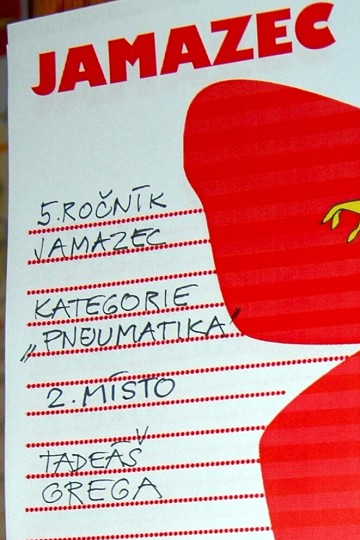 JAMAZEC
5. ROČNÍK
JAMAZEC
KATEGORIE
„PNEUMATIKA"
2. MÍSTO
TADEÁŠ
GREGA